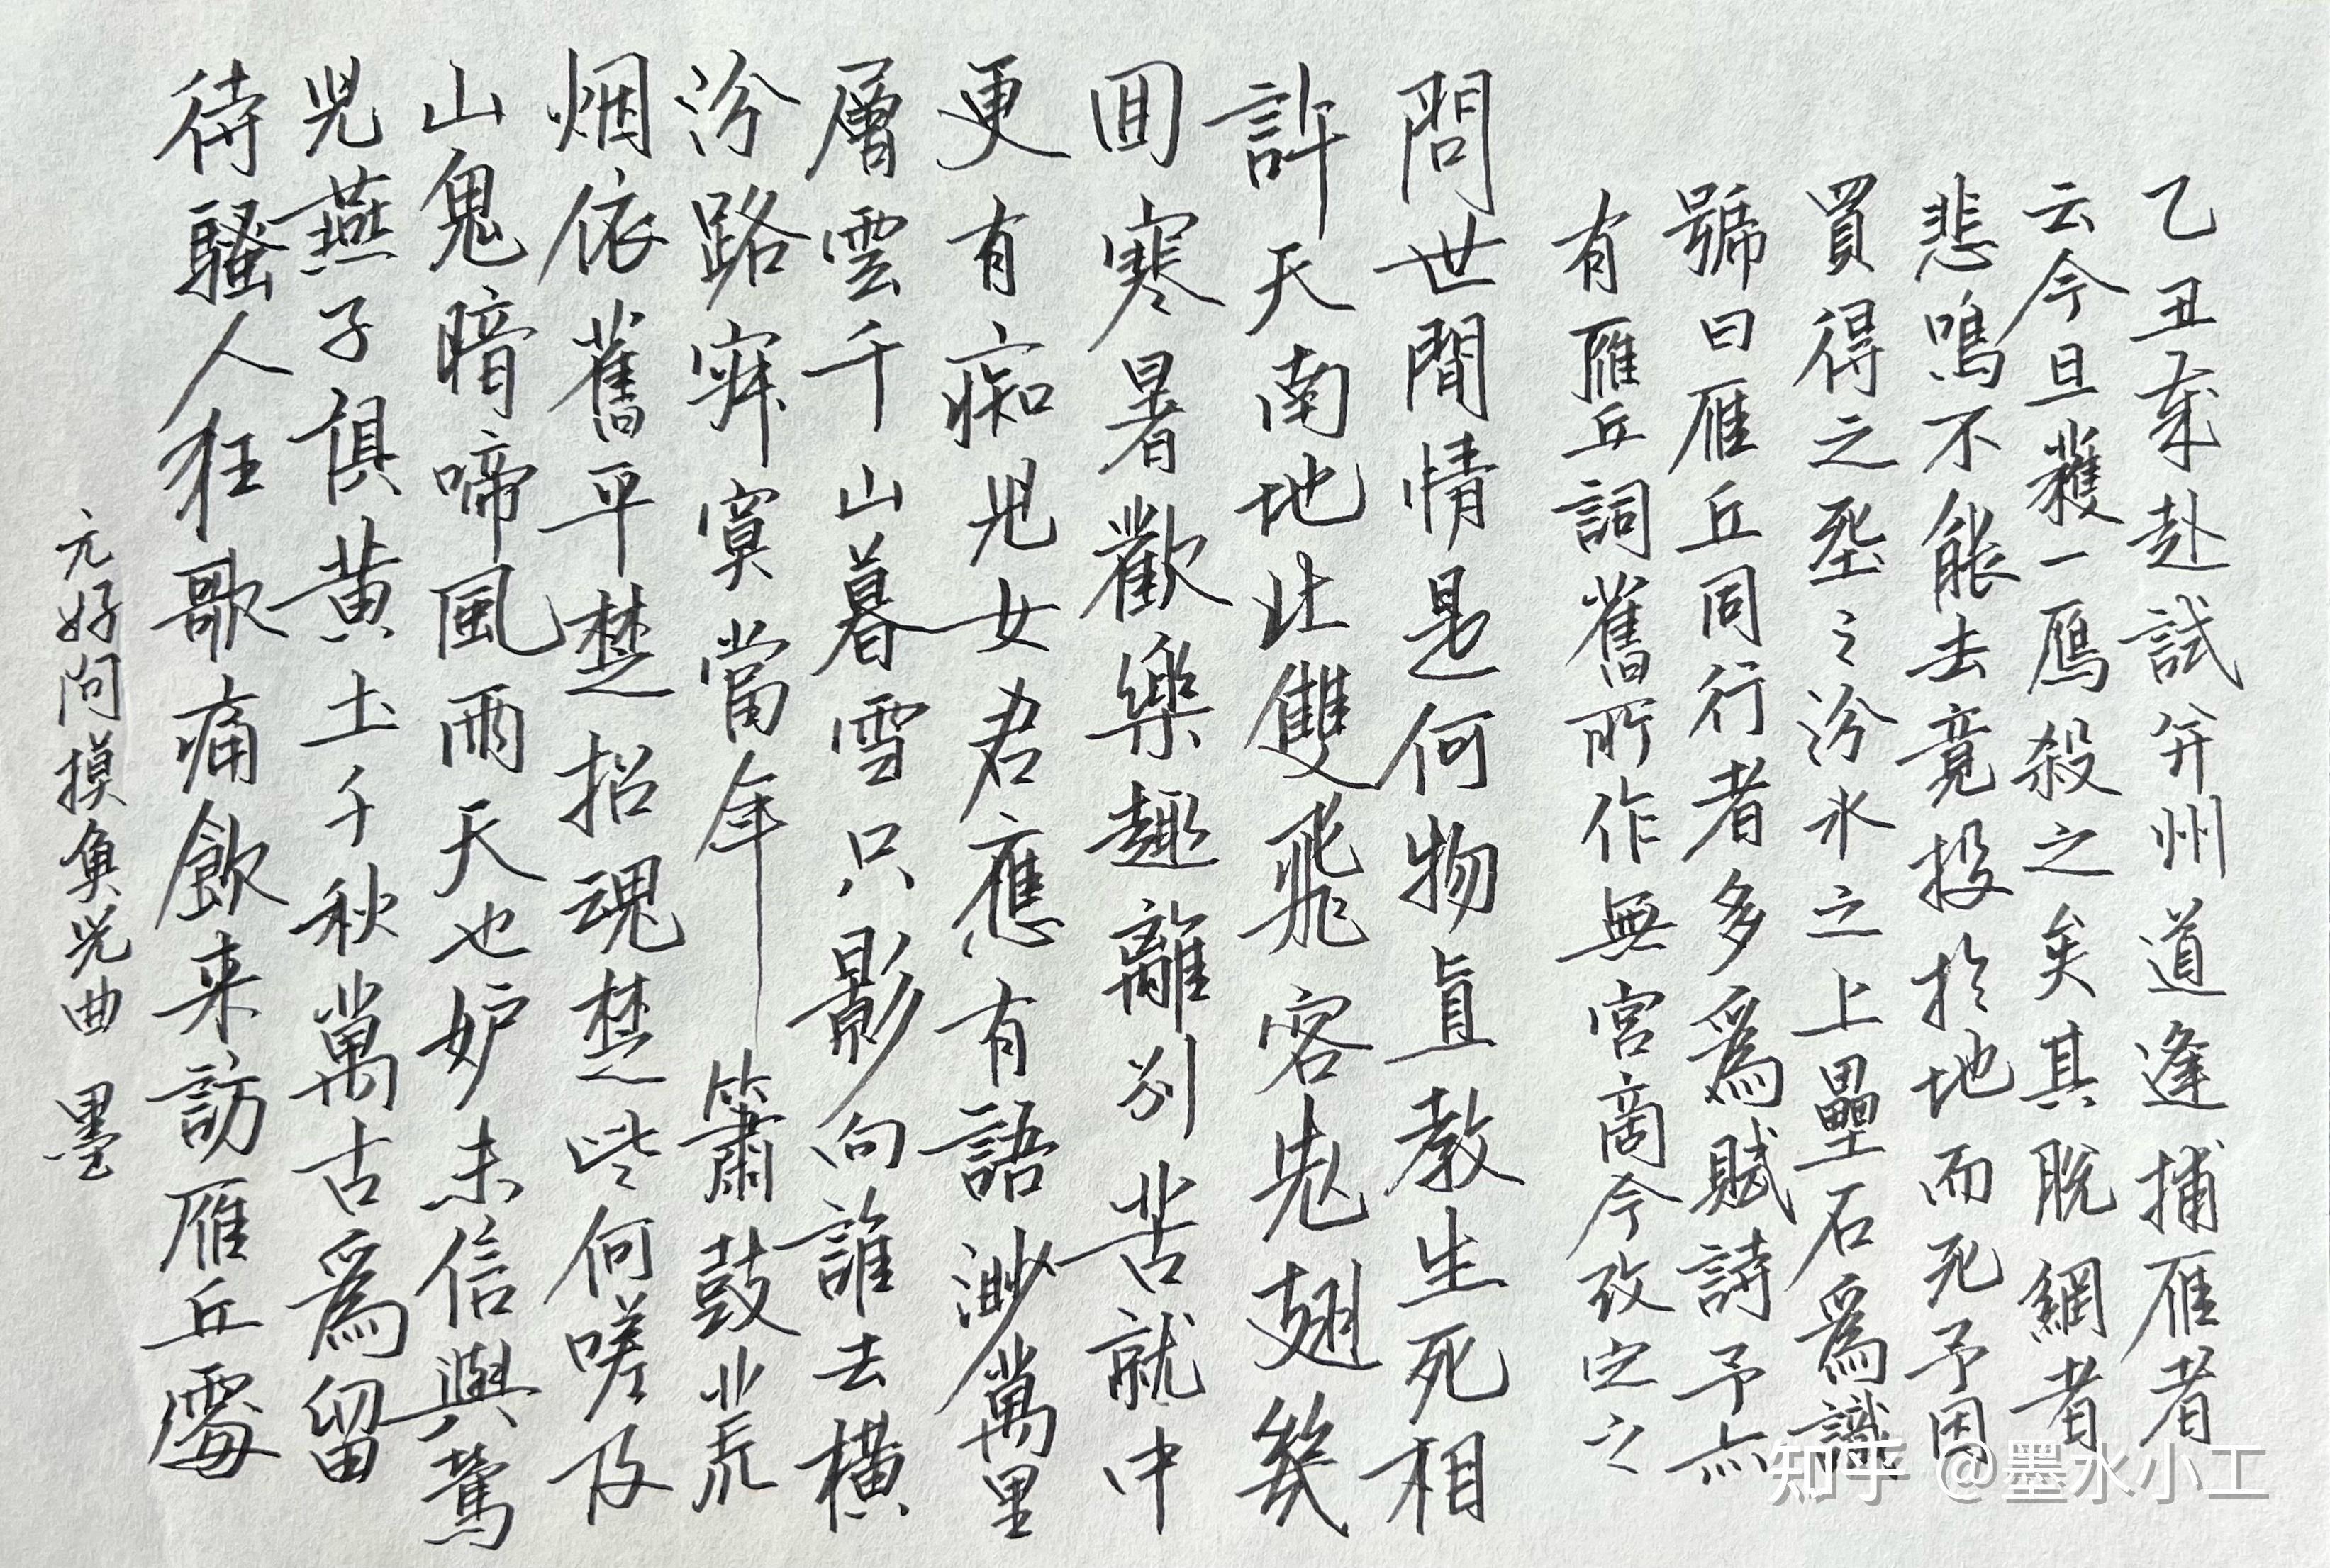 乙丑歲赴試并州道逢捕雁者
云今旦獲一鴈殺之矣其脫網者
悲鳴不能去竟投於地而死予因
買得之𦵏之汾水之上壘石爲識
號曰雁丘同行者多爲賦詩予亦
有雁丘詞舊所作無宮商今改定之
問世間情是何物真教生死相
許天南地北雙飛客老翅幾
回寒暑歡樂趣離別苦就中
更有痴兒女君應有語渺萬里
層雲千山暮雪只影向誰去橫
汾路寂寞當年簫鼓荒
烟依舊平楚招魂楚些何嗟及
山鬼暗啼風雨天也妒未信與鶯
兒燕子俱黃土千秋萬古爲留
待騷人狂歌痛飲来訪雁丘處
元好问摸魚兒曲 墨
知乎 @墨水小工